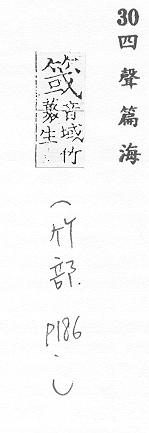 30四聲篇海
䈅音域竹
藂生
（竹部.p186.）